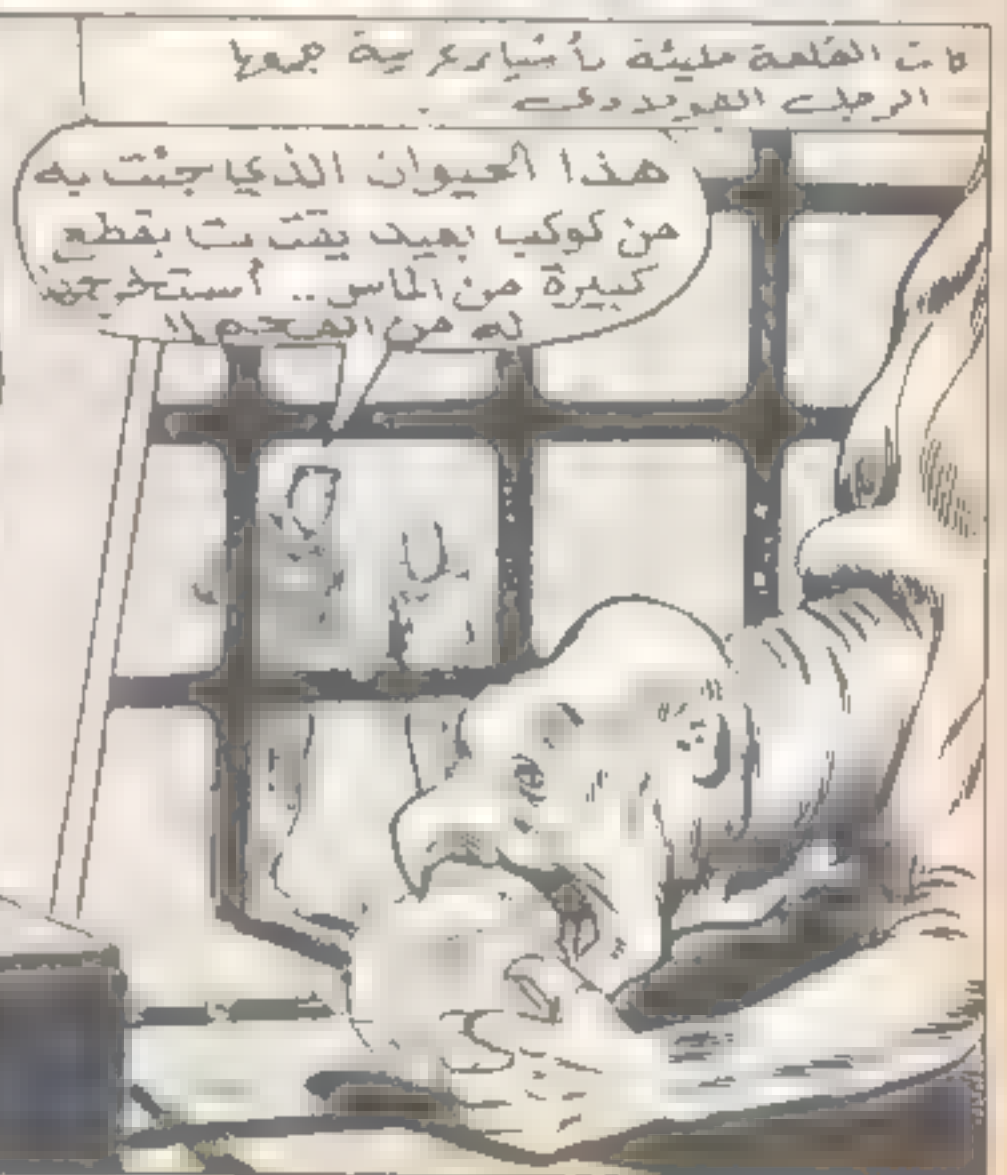 كانت القلعة مليئة بأشياء غريبة جمعها
الرجل الفولاذي
هذا الحيوان الذي جئت به
من كوكب بعيد يقتات بقطع
كبيرة من الماس .. أستخرجها
له من الفحم !!